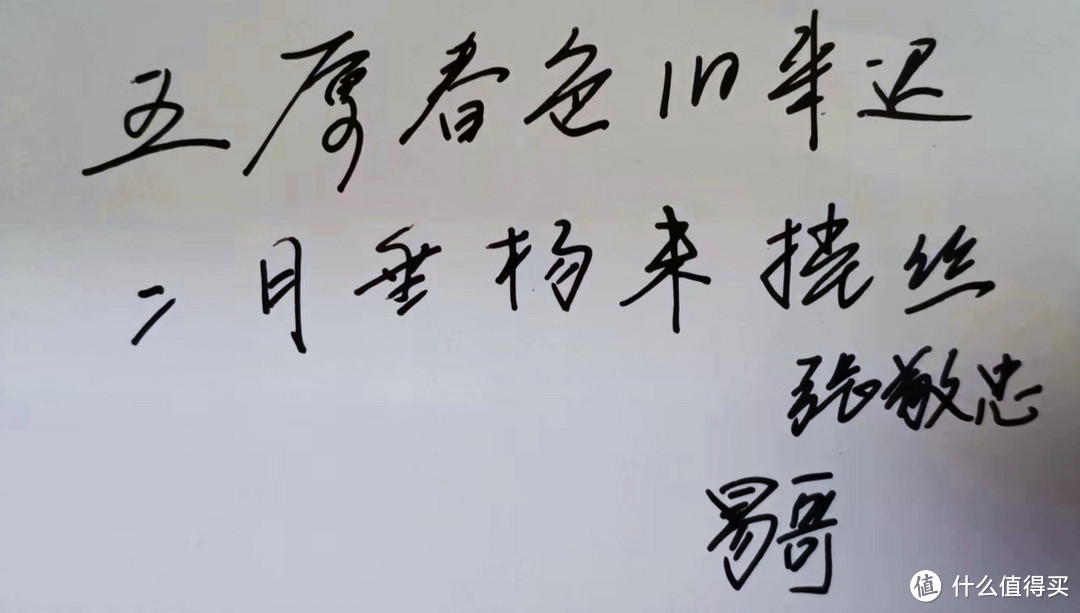 五原春色旧来迟
二月垂杨未挂丝
张敬忠
易哥
值 什么值得买